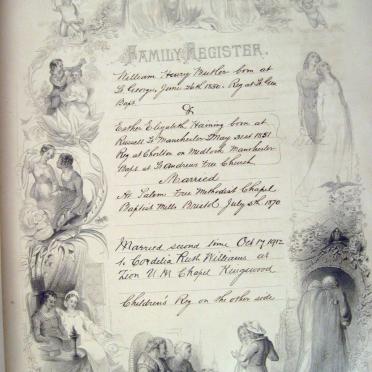 FAMILY REGISTER.
William Henry Butler born at
St George, June 26th 1850. Reg at St Geo
Bap.
&
Esther Elizabeth Haming born at
Russell St Manchester May 31st 1851
Reg at Chorlton on Medlock Manchester
Bap at St Andrews Free Church
Married
At Salem Free Methodist Chapel
Baptist Mills Bristol July 5th 1870
Married second time Oct 17 1912
to Cordelia Ruth Williams at
Zion U.M Chapel Kingswood
Children's Reg on the other side